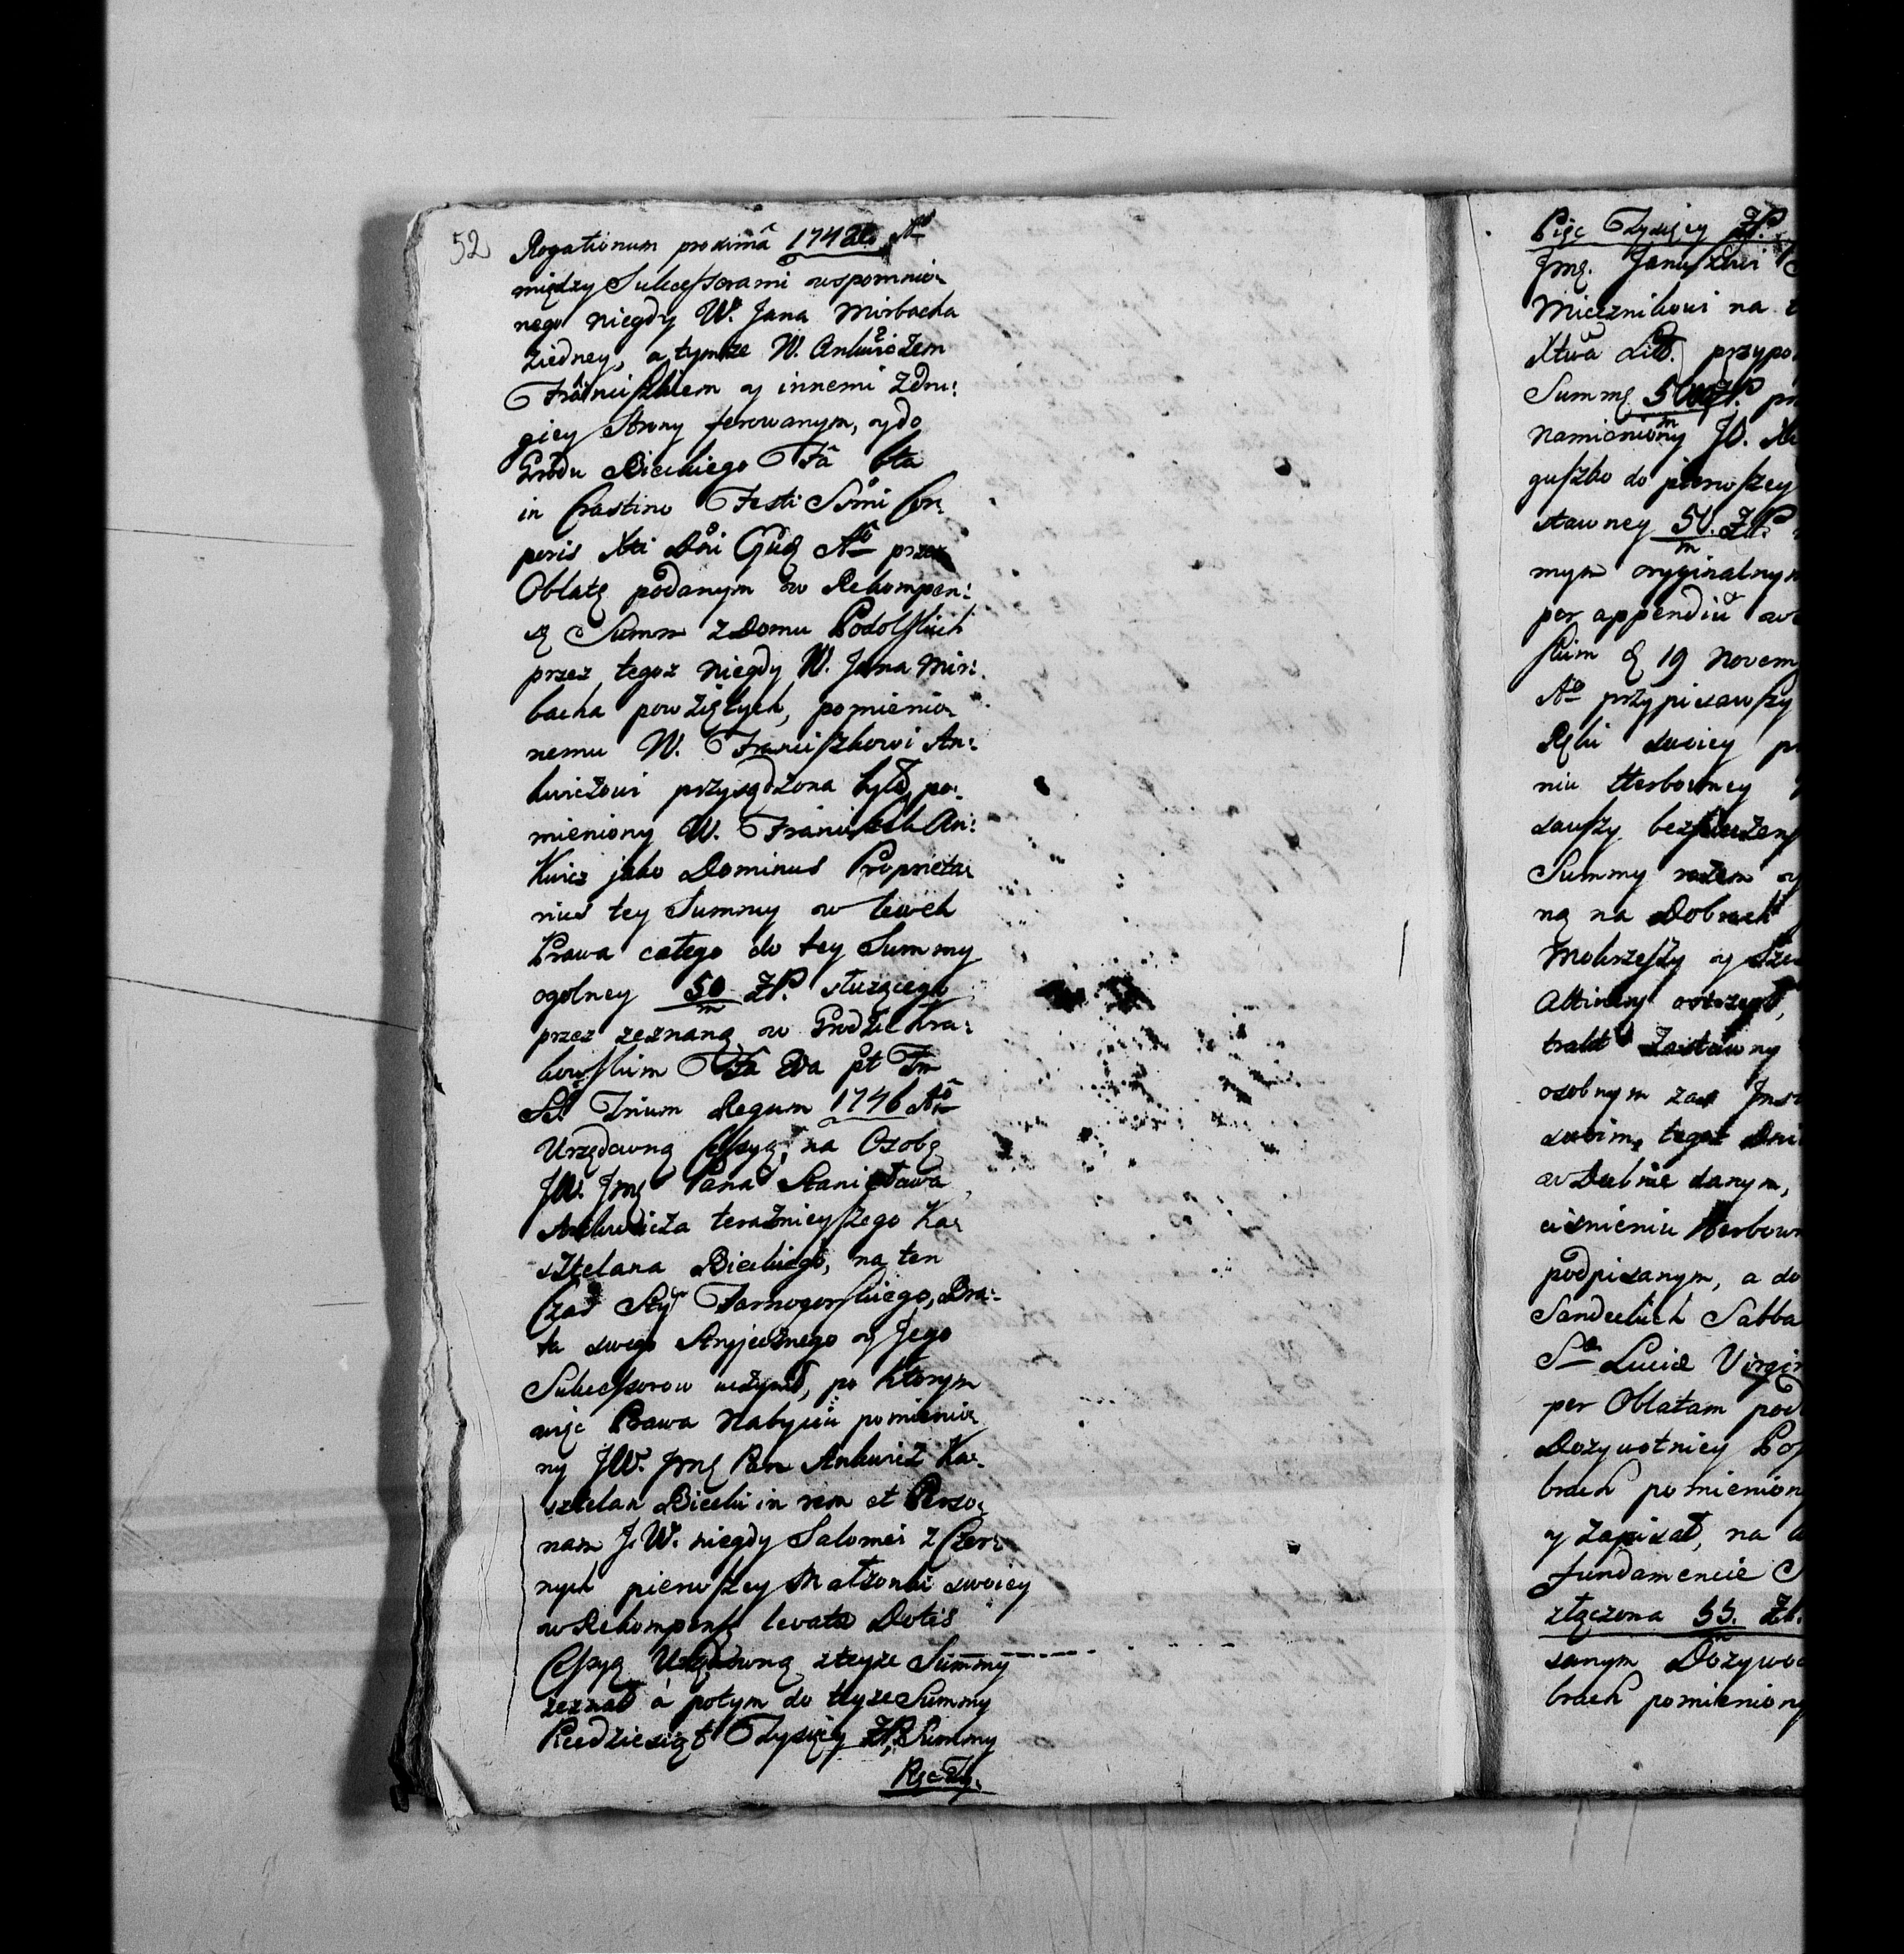 52
Rogationum proximâ 1742do Ao
między Sukcessorami wspomnio-
nego niegdy W. Jana Mirbacha
ziedney, a tymże W. Ankwiczem
Franciszkiem y innemi zdru:
giey strony ferowanym, y do
Grodu Bieckiego Fâ 6ta
in Crastino Festi Ssmi Cor:
poris Xti Dni Ejusd Ao przez
Oblatę podanym w Rekompen:
sę Summ z Domu Podolskich
przez tegoż niegdy W. Jana Mir:
bacha powziętych, pomienio-
nemu W. Franciszkowi An:
kwiczowi przysądzona była, po:
mieniony W. Franciszek An:
kwicz jako Dominus Proprieta-
rius tey Summy w tewch
Prawa całego do tey Summy
ogolney 50/m ZłP. służącego
przez zeznaną w Grodzie Kra:
kowskim Fâ 2da pt Fm
SS. Trium Regum 1746 Ao
Urzędowną Cessyą, na Osobę
JW. Jmę Pana Stanisława
Ankwicza teraznieyszego Ka-
sztelana Bieckiego, na ten
Czas Sty Tarnogorskiego, Bra:
ta swego Stryjecznego y Jego
Sukcessorow uczynił, po ktorym
więc Prawa Nabyciu pomienio-
ny JW. Jmę Pan Ankwicz Ka-
sztelan Biecki in rem et Perso-
nam J.W. niegdy Salomei z Czer-
nych pierwszey Małżonki swoiey
w Rekompensę levata Dotis
Cessyą Urzędowną zteyże Summy
zeznał á potym do teyże Summy
Piędziesiąt Tysięcy ZłP. Summy
Pięć Ty.
Pięć Tysięcy ZłP.
Jmę. Januszowi
Miecznikowi na
Xtwa Litt. przypo
Summę 50/m ZłP.
namieniony JO.
guszko do pierwszey
stawney 50/m ZłP.
mym oryginalnym
per appendicem
skim d 19 Novem
Ao przypisawszy
Ręki swoiey
niu Herbowney
sawszy bezpieczeń
Summy razem y
ną na Dobrach
Mokrzeszy y
trakt Zastawny
osobnym zaś
swoim, tegoż Dni
w Dubnie danym,
ciśnieniu Herbown
podpisanym, a do
Sandeckich Sabba
Stæ Luciæ Virgin
per Oblatam pod
Dożywotniey
brach pomieniony
y zapisał, na
fundamencie
złączona 55/m Zł.
sanym Dożywo
brach pomieniony